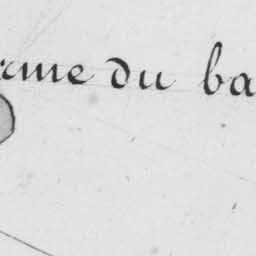 rme du ba